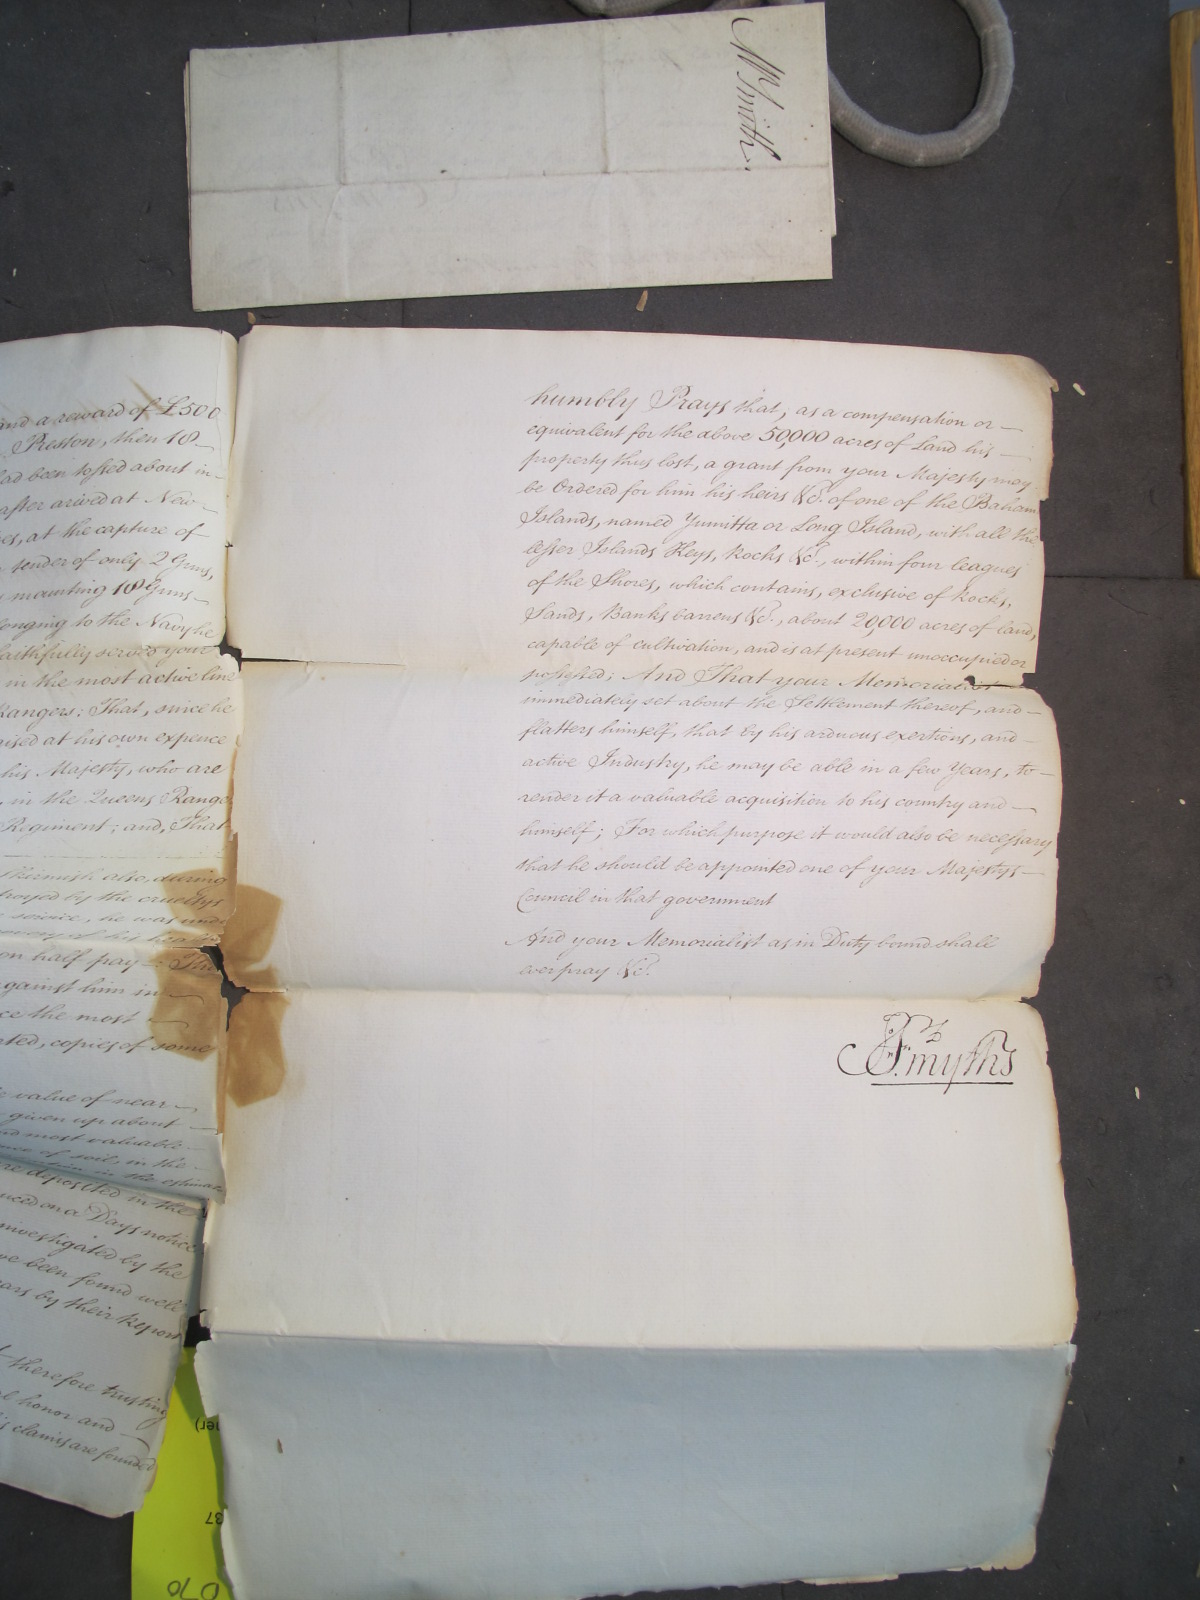 Mr Smith
and a reward of £500
Preston, then 18
had been tossed about in
after arived at New
at the capture of
tender of only 2 Guns,
mounting 18 Guns
longing to the Navy he
faithfully served your
in the most active line
Rangers: That, since he
raised at his own expence
his Majesty, who are
in the Queens Range
Regiment; and, That
Skirmish also, during
troyed by the cruelty
service, he was unde
overy of his health
on half pay—: Tha
against him in
ce the most
ated, copies of some
value of near
given up about
nd most valuable
of soil, in the
in the estimate
re deposited in the
uced on a Days notice
nvestigated by the
ve been found well
ars by their Report
therefore trusting
l honor and
is claims are founded
humbly Prays that, as a compensation or
equivalent for the above 50,000 acres of Land his
property thus lost, a grant from your Majesty may
be Ordered for him his heirs &c. of one of the Baham
Islands, named Yumitta or Long Island, with all the
lesser Islands Keys, Rocks &c., within four leagues
of the Shores, which contains, exclusive of Rocks,
Sands, Banks barrens &c., about 20,000 acres of land,
capable of cultivation, and is at present unoccupied or
possessed; And That your Memorialist
immediately set about the Settlement thereof, and
flatters himself, that by his arduous exertions, and
active Industry, he may be able in a few Years, to
render it a valuable acquisition to his country and
himself; For which purpose it would also be necessary
that he should be appointed one of your Majestys
Council in that government
And your Memorialist as in Duty bound shall
ever pray &c.
Smyths
ner)
37
070